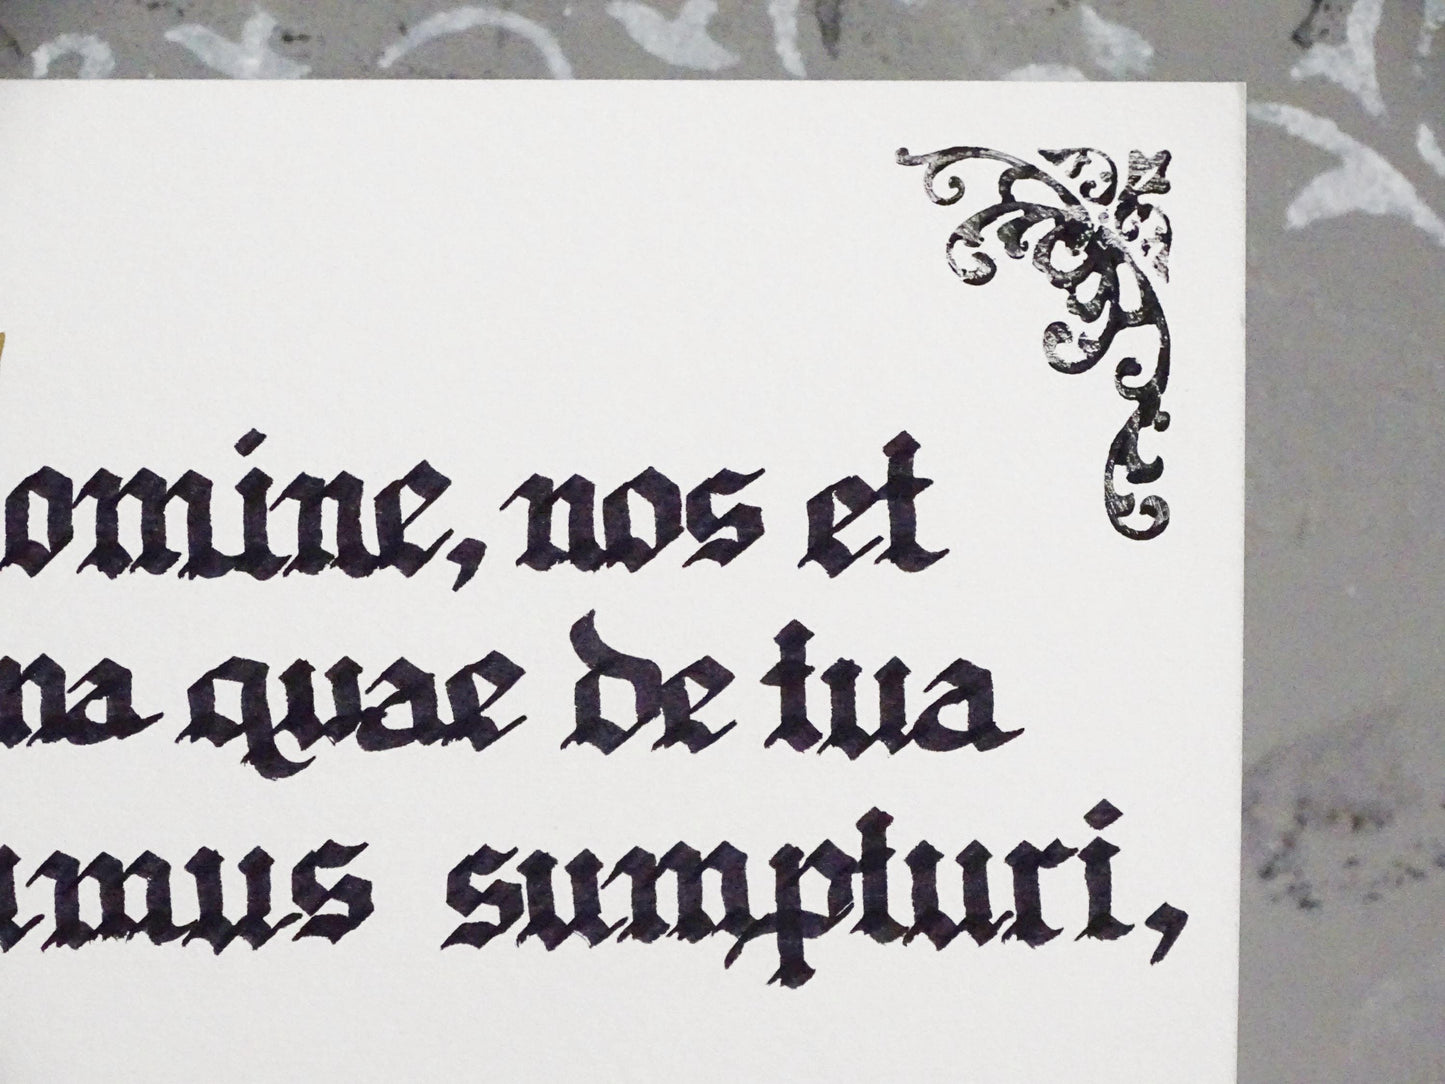 omine, nos et
na quae de tua
umus sumpturi,